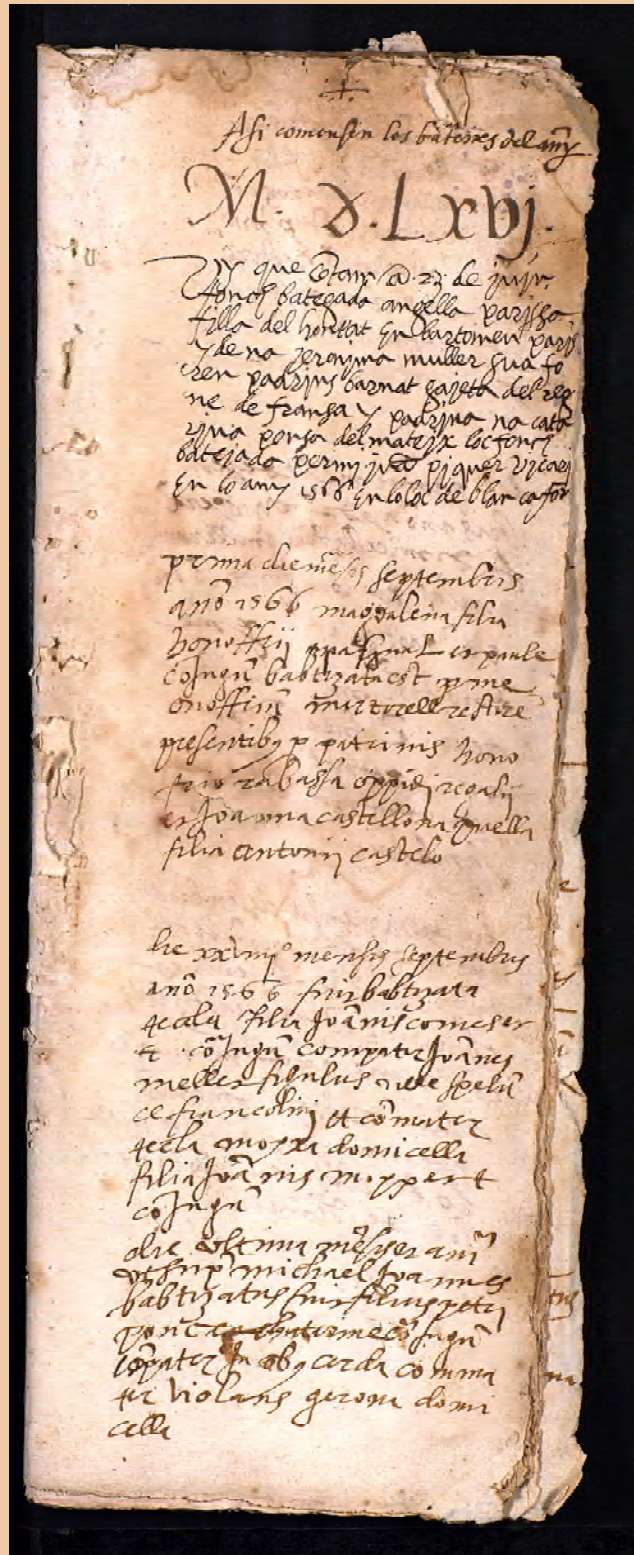 +
Asi comensen los batejres del any
M. D. Lxvj.
que contam a 23 de juny
fonch bategada angella parissa
filla del honrrat En bartomeu paris
y de na jeronima muller sua fo
ren padrins barnat gajeta del reg
ne de fransa y padrina na cata
rina ponsa del mateix loc fonch
batejada per mi piquer vicari
En lo any 1566 En lo loc de blancafor
prima die mesis septembris
ano 1566 magdalena filia
honoffrij et paule
cojugu babtizata est p me
onoffriu martorell rectore
presentiby p patrinis hono
frio rabassa oppidi regalij
et Joanna castellona puella
filia antonij castelo
die xxiiijº mensis septembris
ano 1566 fuit babtizata
tecla filia Joanis comeser
et cojugu compater Joanes
meller figulus ville spelu
ce francolini et comater
tecla moxxa domicella
filia Joanis moxxert
cojugu
die ultima mesis et ani
ut sup michael Joannes
babtizatus fuit filius petri
ponc cojugu
copater Jacoby cerda comma
ter violans gerona domi
cella